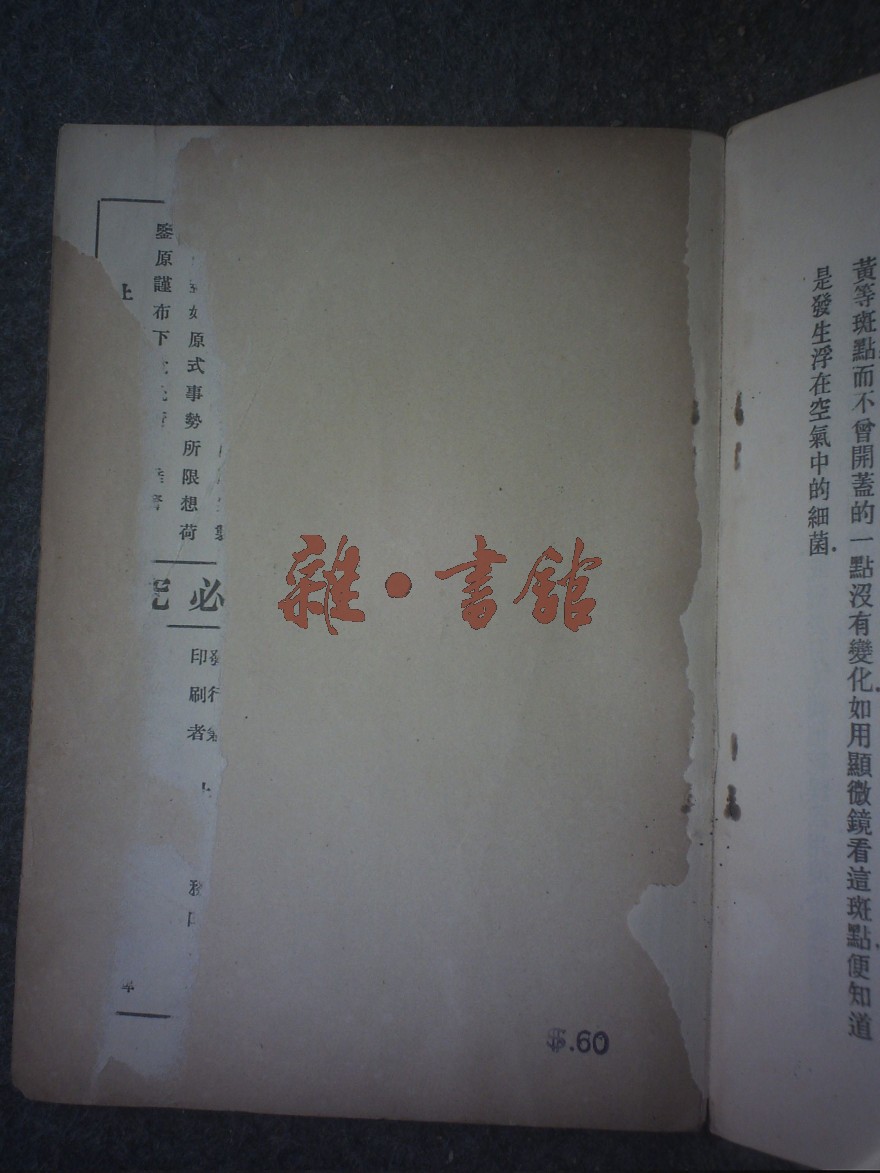 黃等斑點而不曾開蓋的一點沒有變化．如用顯微鏡看這斑點，便知道
是發生浮在空氣中的細菌．
原式事勢所限想荷
鑒原謹布下
必究
發行兼
印刷者
上
雜・書館
$.60